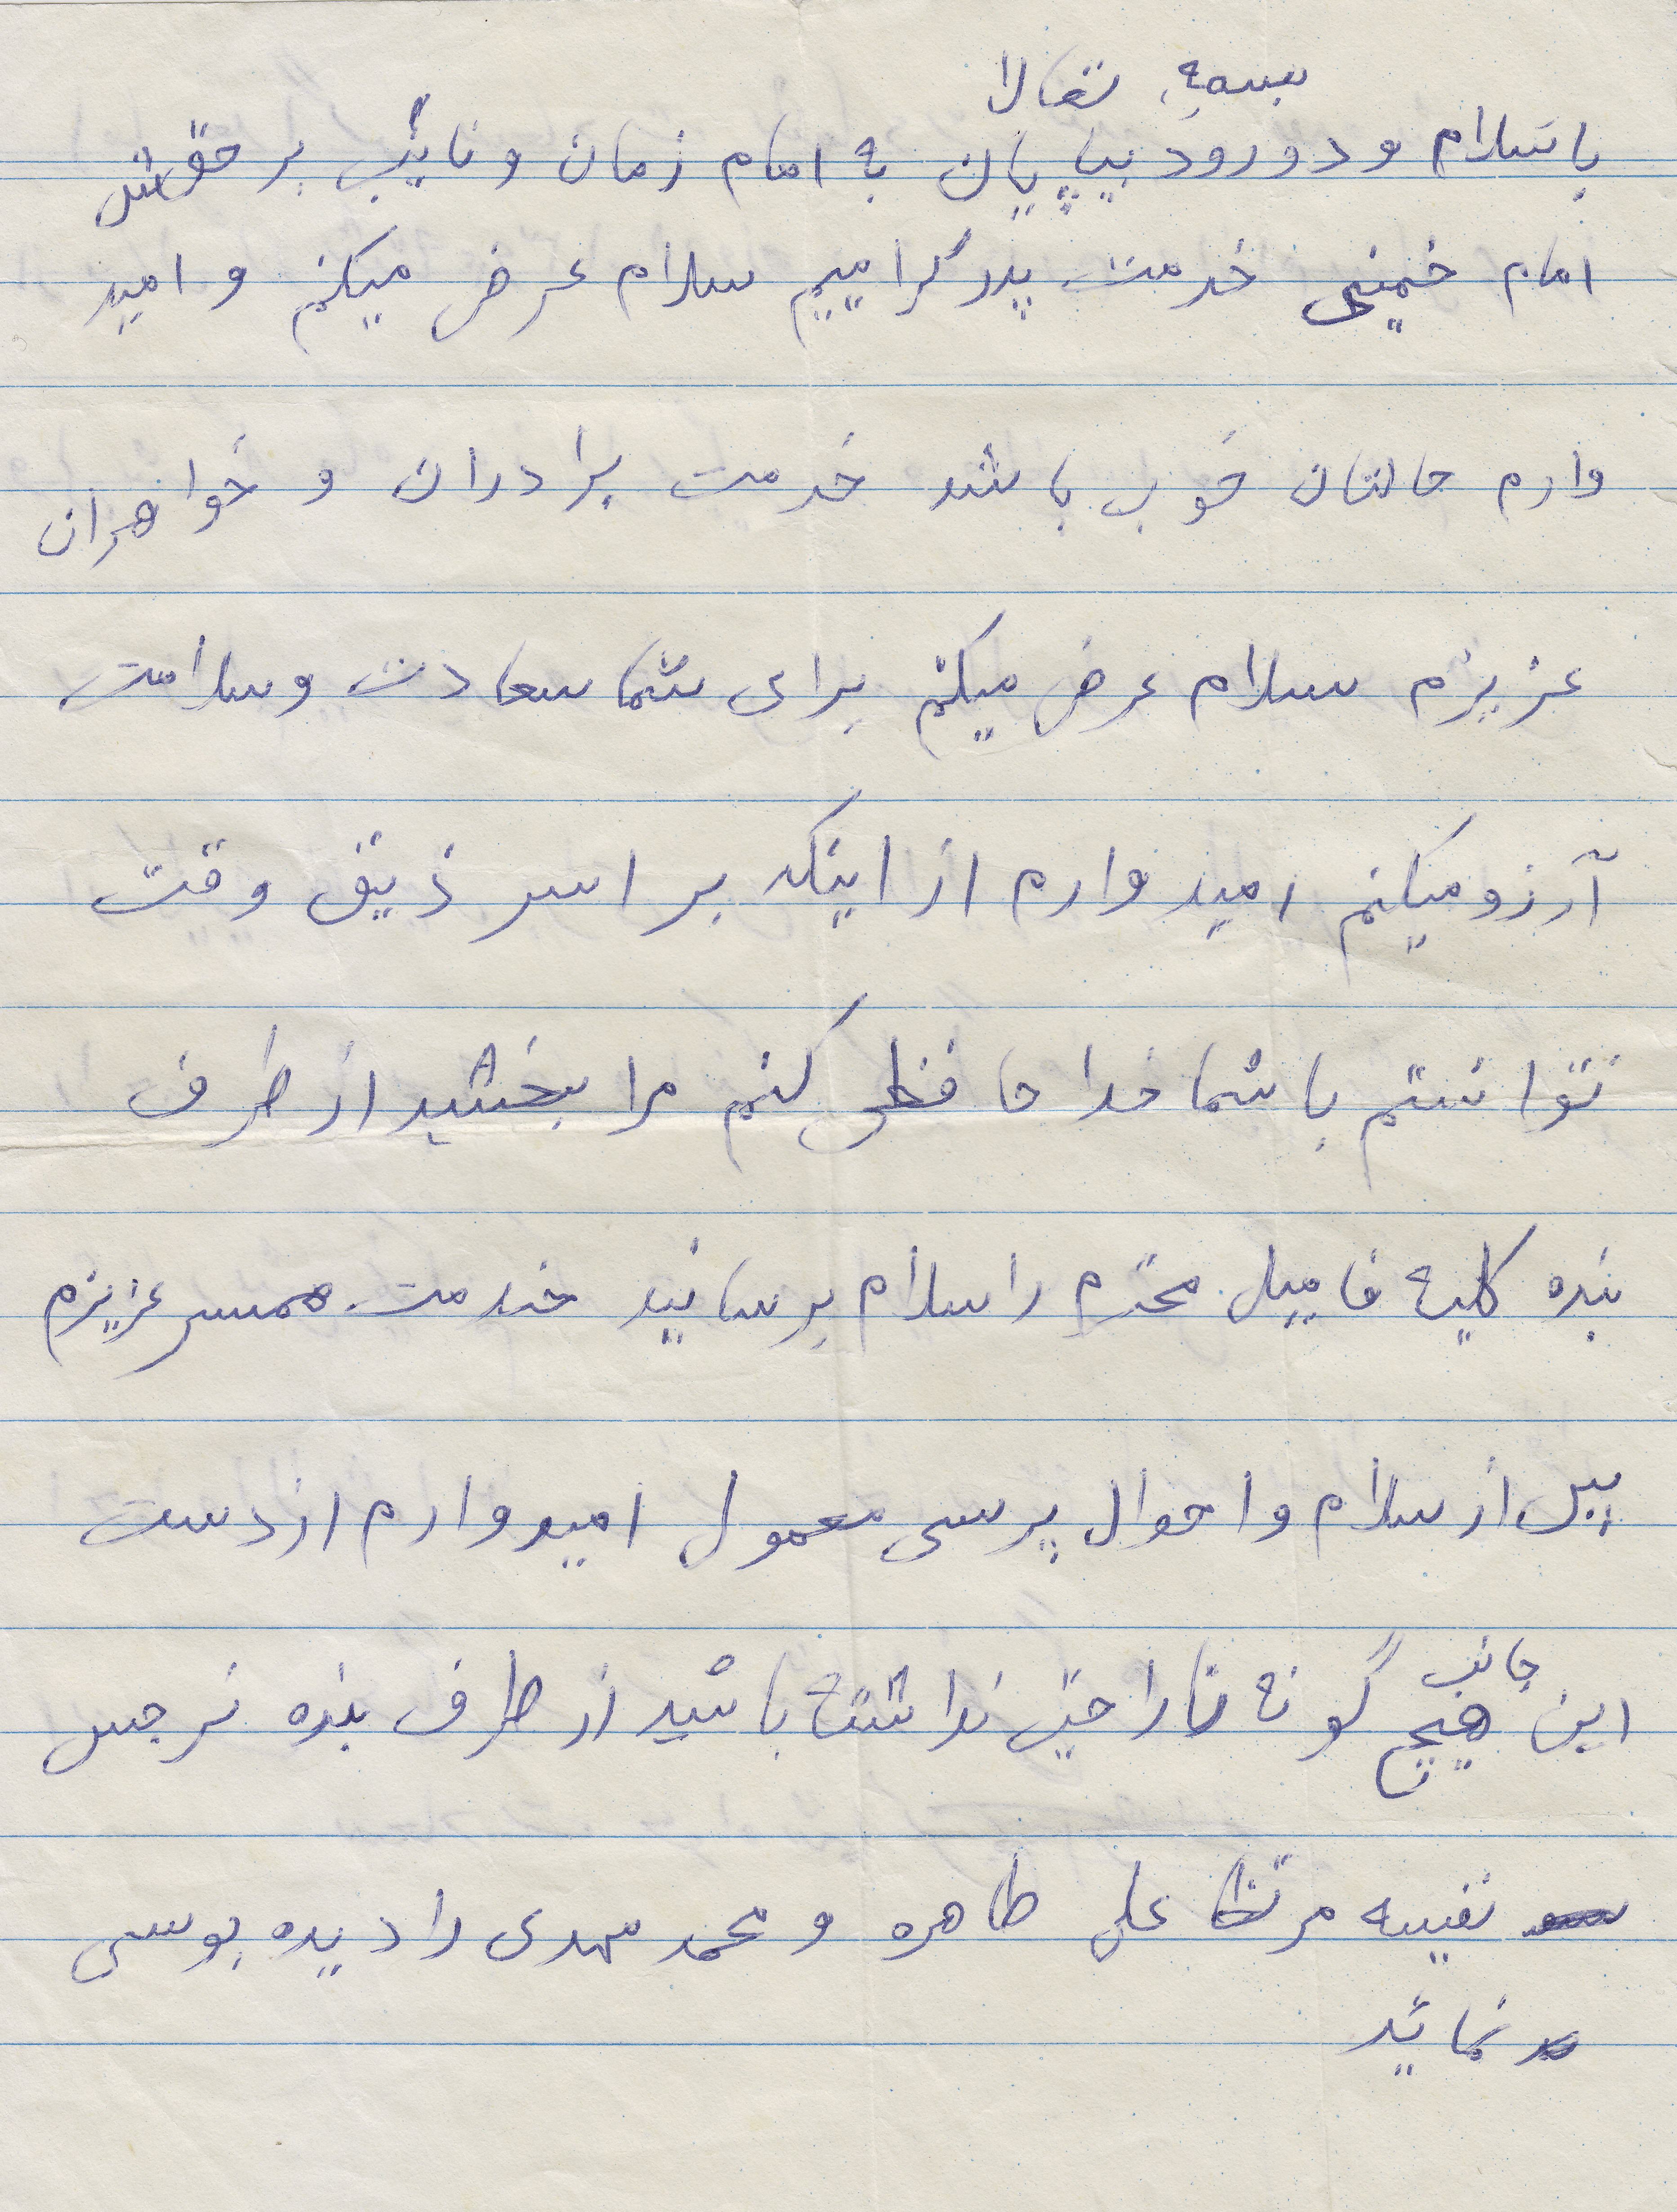 بسمه تعالا
باسلام و دورود بیپایان به امام زمان و نائب بر حقش
امام خمینی خدمت پدر گرامییم سلام عرض میکنم و امید
وارم حالتان خوب باشد خدمت برادران و خواهران
عزیزم سلام عرض میکنم برای شما سعادت و سلامت
آرزو میکنم امید وارم از اینکه بر اسر ذیق وقت
نتوانستم با شما خدا حافظی کنم مرا ببخشید از طرف
بنده کلیه فامیل محترم را سلام برسانید خدمت همسر عزیزم
پس از سلام و احوال پرسی معمول امیدوارم از دست
این جانب هیچ گونه ناراحتی نداشته باشید از طرف بنده نرجس
نفیسه مرتظا علی طاهره و محمد مهدی را دیده بوسی
نمائید